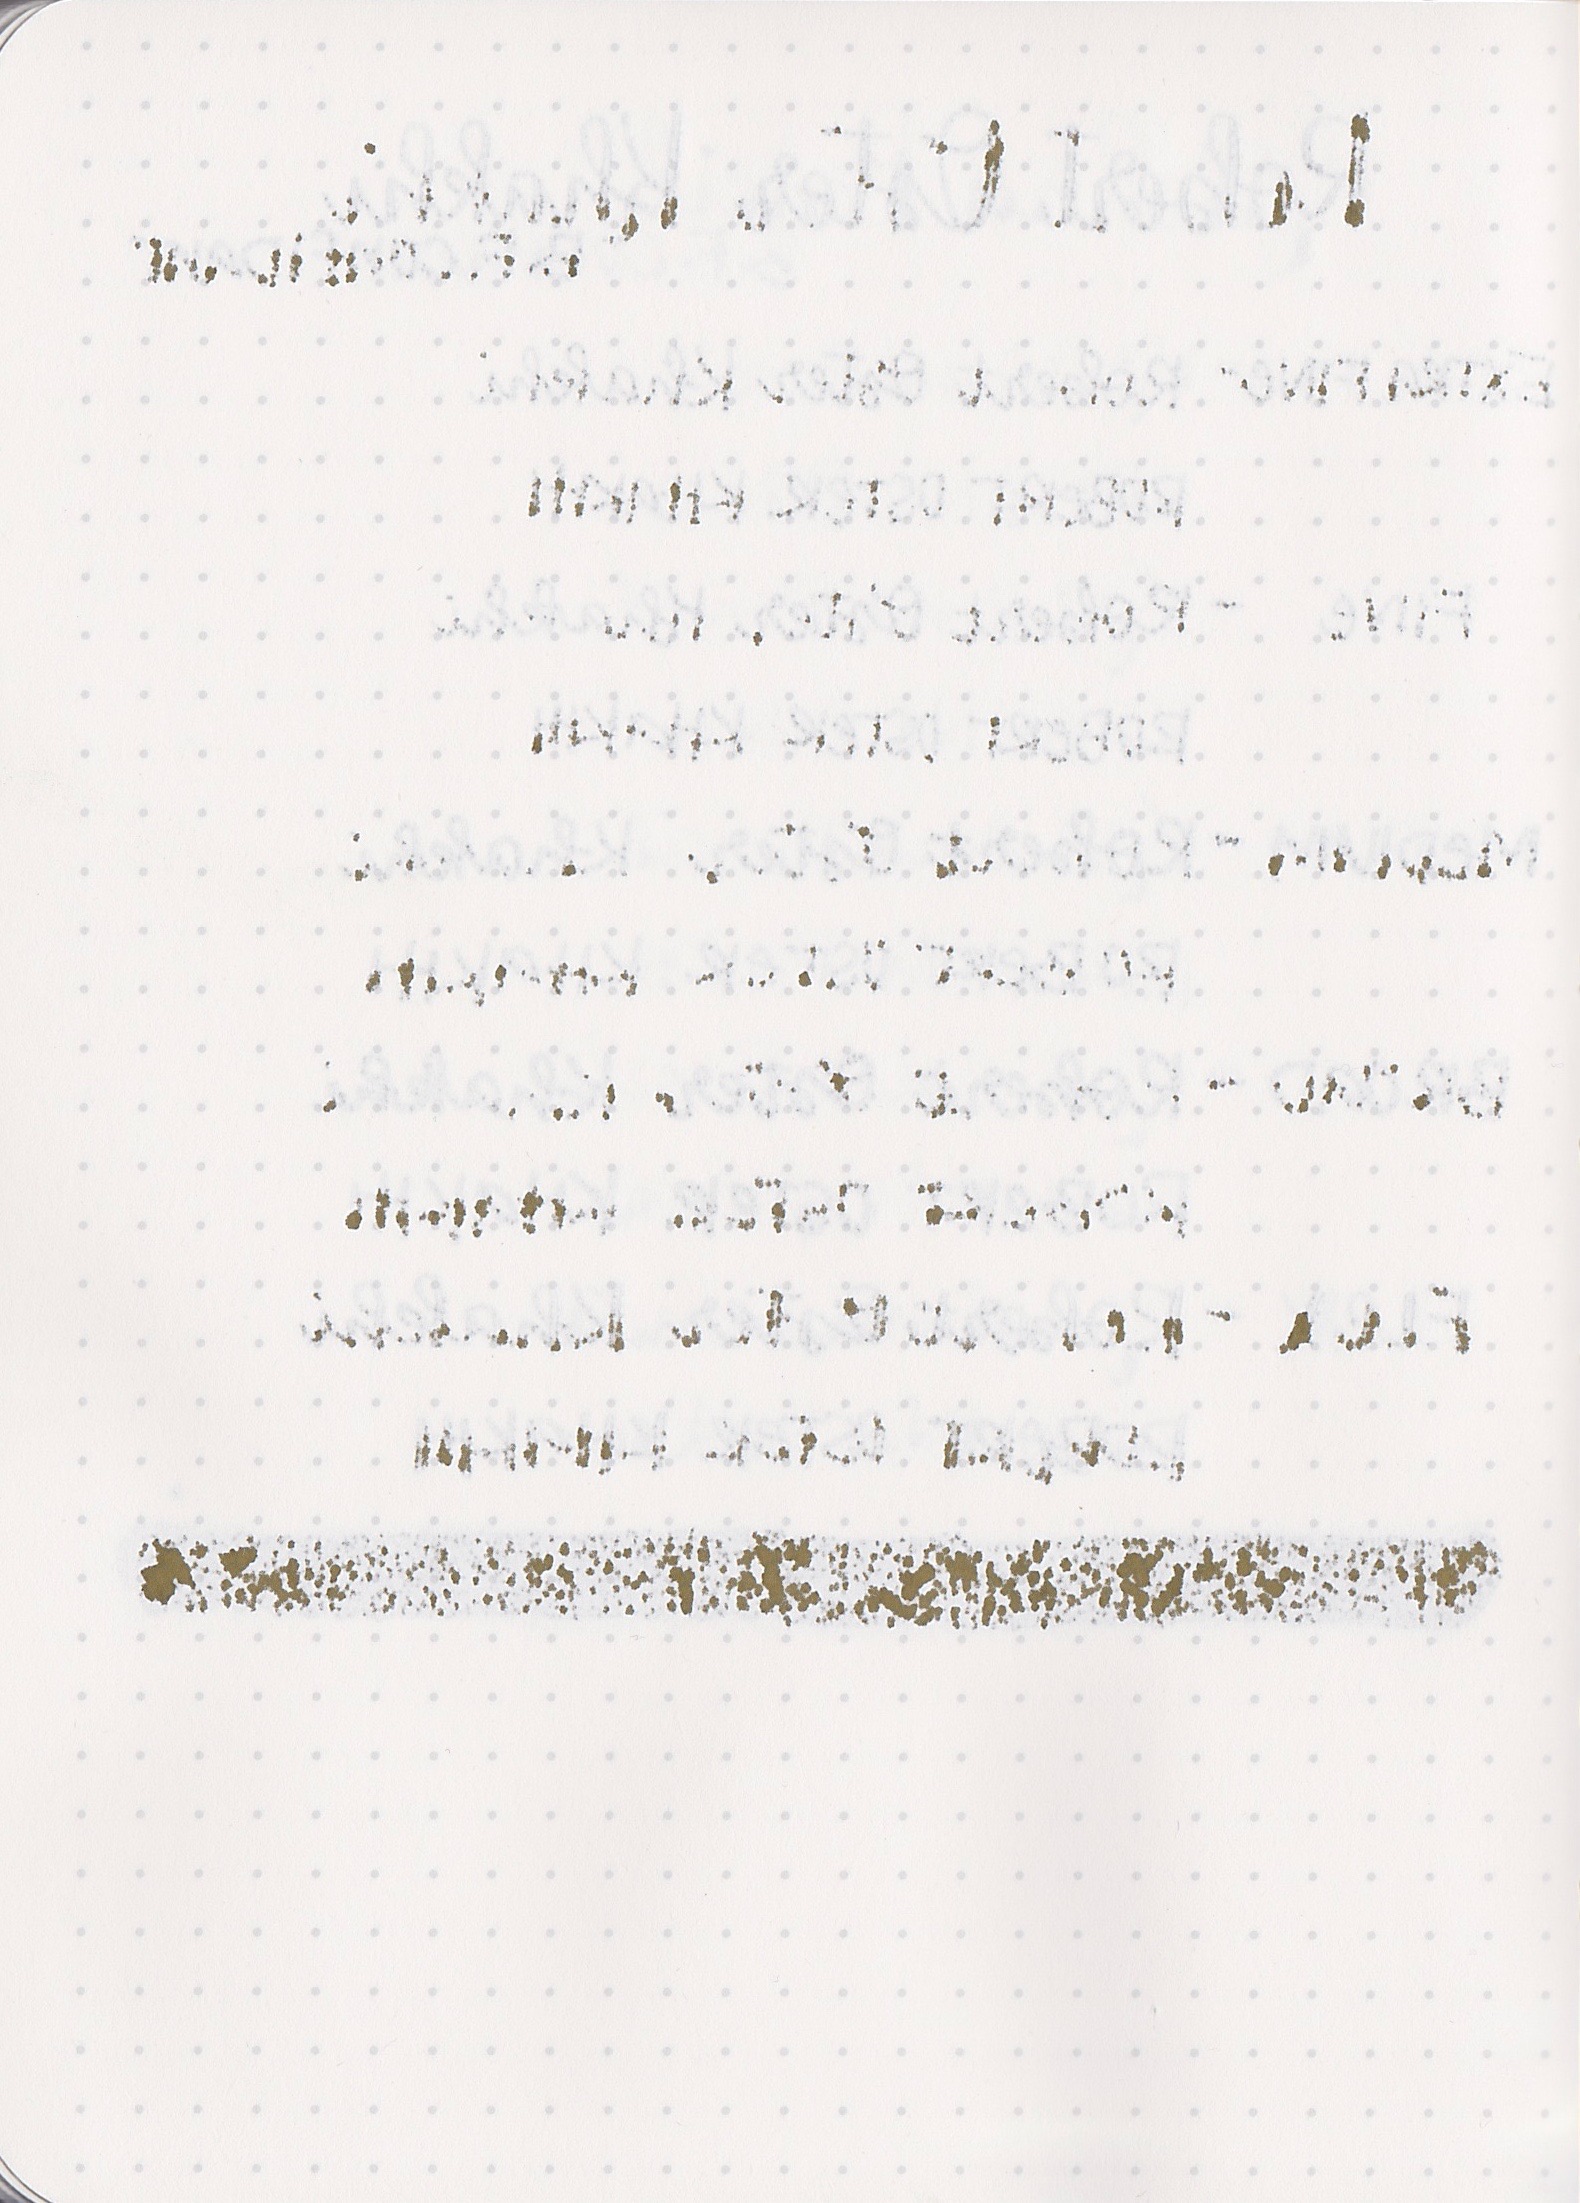 Robert Oster Khakhi
EXTRA FINE - Robert Oster Khakhi
ROBERT OSTER KHAKHI
FINE - Robert Oster Khakhi
ROBERT OSTER KHAKHI
MEDIUM - Robert Oster Khakhi
ROBERT OSTER KHAKHI
BROAD - Robert Oster Khakhi
ROBERT OSTER KHAKHI
FLEX - Robert Oster Khakhi
ROBERT OSTER KHAKHI